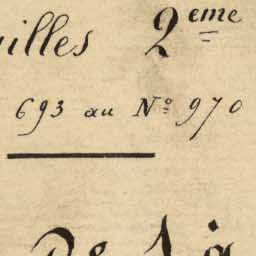 illes 2eme
693 au No 970